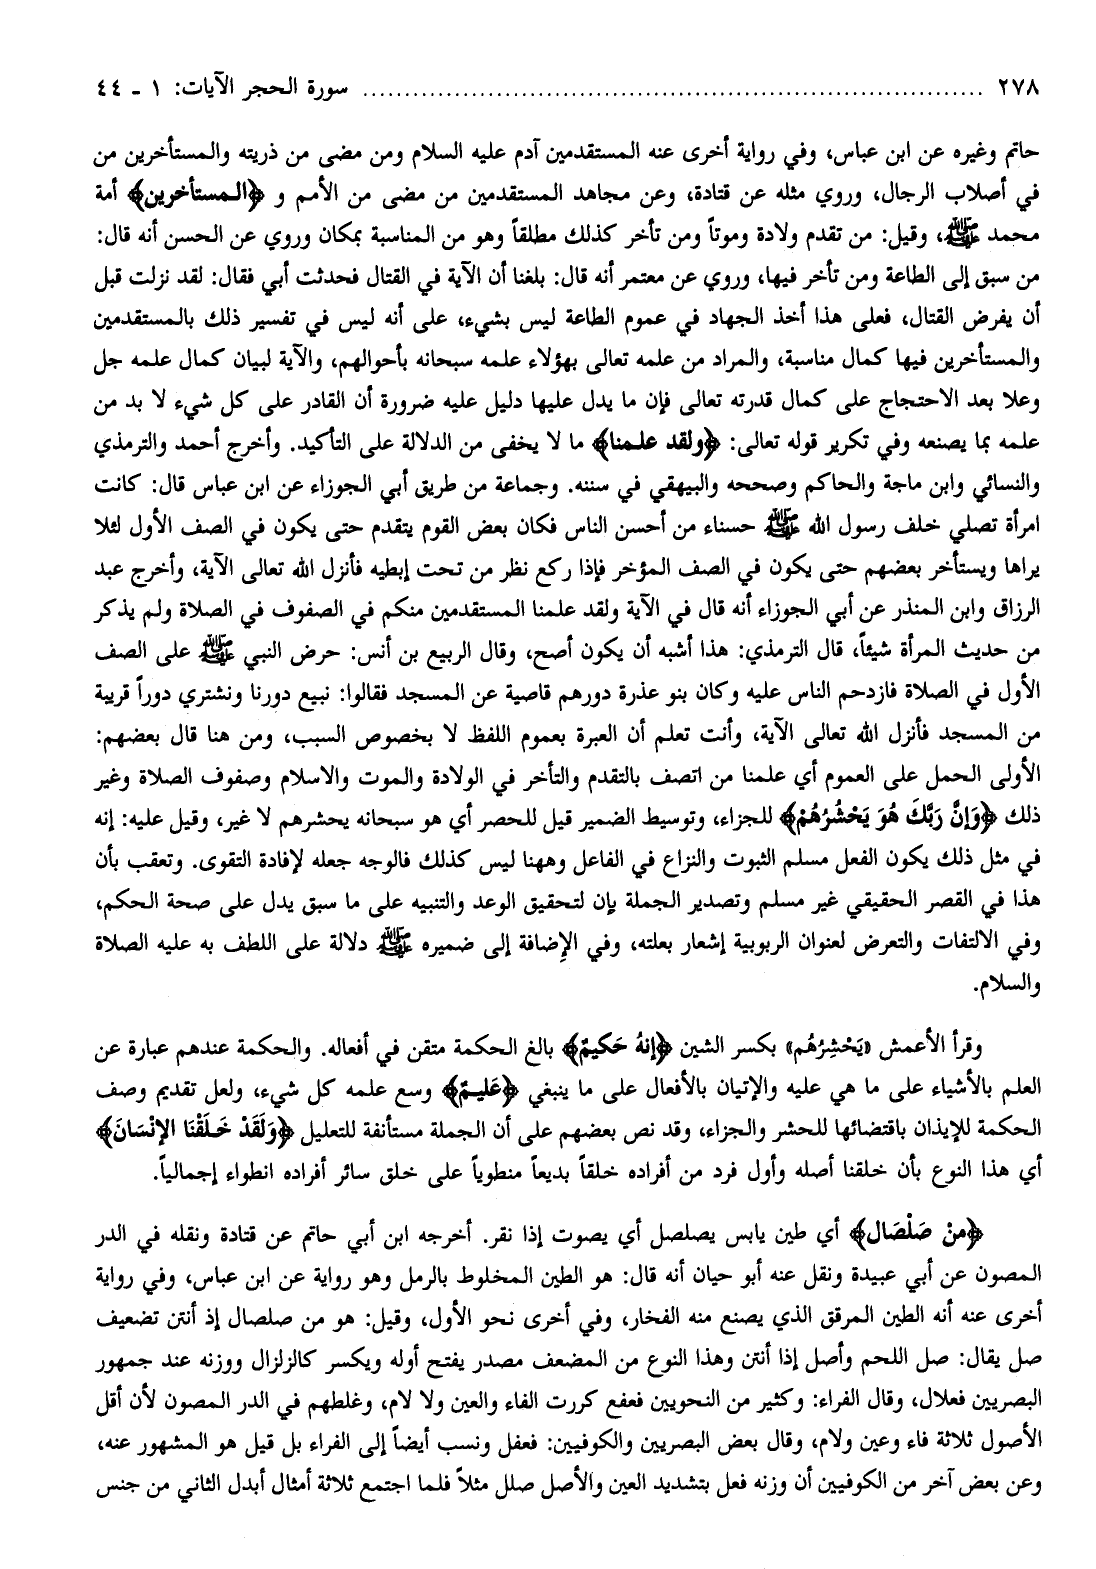 ٢٧٨ ........................................................................... سورة الحجر الآيات: ١ ـ ٤٤
حاتم وغيره عن ابن عباس، وفي رواية أخرى عنه المستقدمين آدم عليه السلام ومن مضى من ذريته والمستأخرين من
في أصلاب الرجال، وروي مثله عن قتادة، وعن مجاهد المستقدمين من مضى من الأمم و ﴿المستأخرين﴾ أمة
محمد ﷺ، وقيل: من تقدم ولادة وموتاً ومن تأخر كذلك مطلقاً وهو من المناسبة بمكان وروي عن الحسن أنه قال:
من سبق إلى الطاعة ومن تأخر فيها، وروي عن معتمر أنه قال: بلغنا أن الآية في القتال فحدثت أبي فقال: لقد نزلت قبل
أن يفرض القتال، فعلى هذا أخذ الجهاد في عموم الطاعة ليس بشيء، على أنه ليس في تفسير ذلك بالمستقدمين
والمستأخرين فيها كمال مناسبة، والمراد من علمه تعالى بهؤلاء علمه سبحانه بأحوالهم، والآية لبيان كمال علمه جل
وعلا بعد الاحتجاج على كمال قدرته تعالى فإن ما يدل عليها دليل عليه ضرورة أن القادر على كل شيء لا بد من
علمه بما يصنعه وفي تكرير قوله تعالى: ﴿ولقد علمنا﴾ ما لا يخفى من الدلالة على التأكيد. وأخرج أحمد والترمذي
والنسائي وابن ماجة والحاكم وصححه والبيهقي في سننه. وجماعة من طريق أبي الجوزاء عن ابن عباس قال: كانت
امرأة تصلي خلف رسول الله ﷺ حسناء من أحسن الناس فكان بعض القوم يتقدم حتى يكون في الصف الأول لئلا
يراها ويستأخر بعضهم حتى يكون في الصف المؤخر فإذا ركع نظر من تحت إبطيه فأنزل الله تعالى الآية، وأخرج عبد
الرزاق وابن المنذر عن أبي الجوزاء أنه قال في الآية ولقد علمنا المستقدمين منكم في الصفوف في الصلاة ولم يذكر
من حديث المرأة شيئاً، قال الترمذي: هذا أشبه أن يكون أصح، وقال الربيع بن أنس: حرض النبي ﷺ على الصف
الأول في الصلاة فازدحم الناس عليه وكان بنو عذرة دورهم قاصية عن المسجد فقالوا: نبيع دورنا ونشتري دوراً قريبة
من المسجد فأنزل الله تعالى الآية، وأنت تعلم أن العبرة بعموم اللفظ لا بخصوص السبب، ومن هنا قال بعضهم:
الأولى الحمل على العموم أي علمنا من اتصف بالتقدم والتأخر في الولادة والموت والاسلام وصفوف الصلاة وغير
ذلك ﴿وَإِنَّ رَبَّكَ هُوَ يَحْشُرُهُمْ﴾ للجزاء، وتوسيط الضمير قيل للحصر أي هو سبحانه يحشرهم لا غير، وقيل عليه: إنه
في مثل ذلك يكون الفعل مسلم الثبوت والنزاع في الفاعل وههنا ليس كذلك فالوجه جعله لإفادة التقوى. وتعقب بأن
هذا في القصر الحقيقي غير مسلم وتصدير الجملة بإن لتحقيق الوعد والتنبيه على ما سبق يدل على صحة الحكم،
وفي الالتفات والتعرض لعنوان الربوبية إشعار بعلته، وفي الإضافة إلى ضميره ﷺ دلالة على اللطف به عليه الصلاة
والسلام.
وقرأ الأعمش «يَحْشِرُهُم» بكسر الشين ﴿إنهُ حَكيمٌ﴾ بالغ الحكمة متقن في أفعاله. والحكمة عندهم عبارة عن
العلم بالأشياء على ما هي عليه والإتيان بالأفعال على ما ينبغي ﴿عَليمٌ﴾ وسع علمه كل شيء، ولعل تقديم وصف
الحكمة للإيذان باقتضائها للحشر والجزاء، وقد نص بعضهم على أن الجملة مستأنفة للتعليل ﴿وَلَقَدْ خَلَقْنَا الإنْسَانَ﴾
أي هذا النوع بأن خلقنا أصله وأول فرد من أفراده خلقاً بديعاً منطوياً على خلق سائر أفراده انطواء إجمالياً.
﴿منْ صَلْصَال﴾ أي طين يابس يصلصل أي يصوت إذا نقر. أخرجه ابن أبي حاتم عن قتادة ونقله في الدر
المصون عن أبي عبيدة ونقل عنه أبو حيان أنه قال: هو الطين المخلوط بالرمل وهو رواية عن ابن عباس، وفي رواية
أخرى عنه أنه الطين المرقق الذي يصنع منه الفخار، وفي أخرى نحو الأول، وقيل: هو من صلصال إذ أنتن تضعيف
صل يقال: صل اللحم وأصل إذا أنتن وهذا النوع من المضعف مصدر يفتح أوله ويكسر كالزلزال ووزنه عند جمهور
البصريين فعلال، وقال الفراء: وكثير من النحويين فعفع كررت الفاء والعين ولا لام، وغلطهم في الدر المصون لأن أقل
الأصول ثلاثة فاء وعين ولام، وقال بعض البصريين والكوفيين: فعفل ونسب أيضاً إلى الفراء بل قيل هو المشهور عنه،
وعن بعض آخر من الكوفيين أن وزنه فعل بتشديد العين والأصل صلل مثلاً فلما اجتمع ثلاثة أمثال أبدل الثاني من جنس